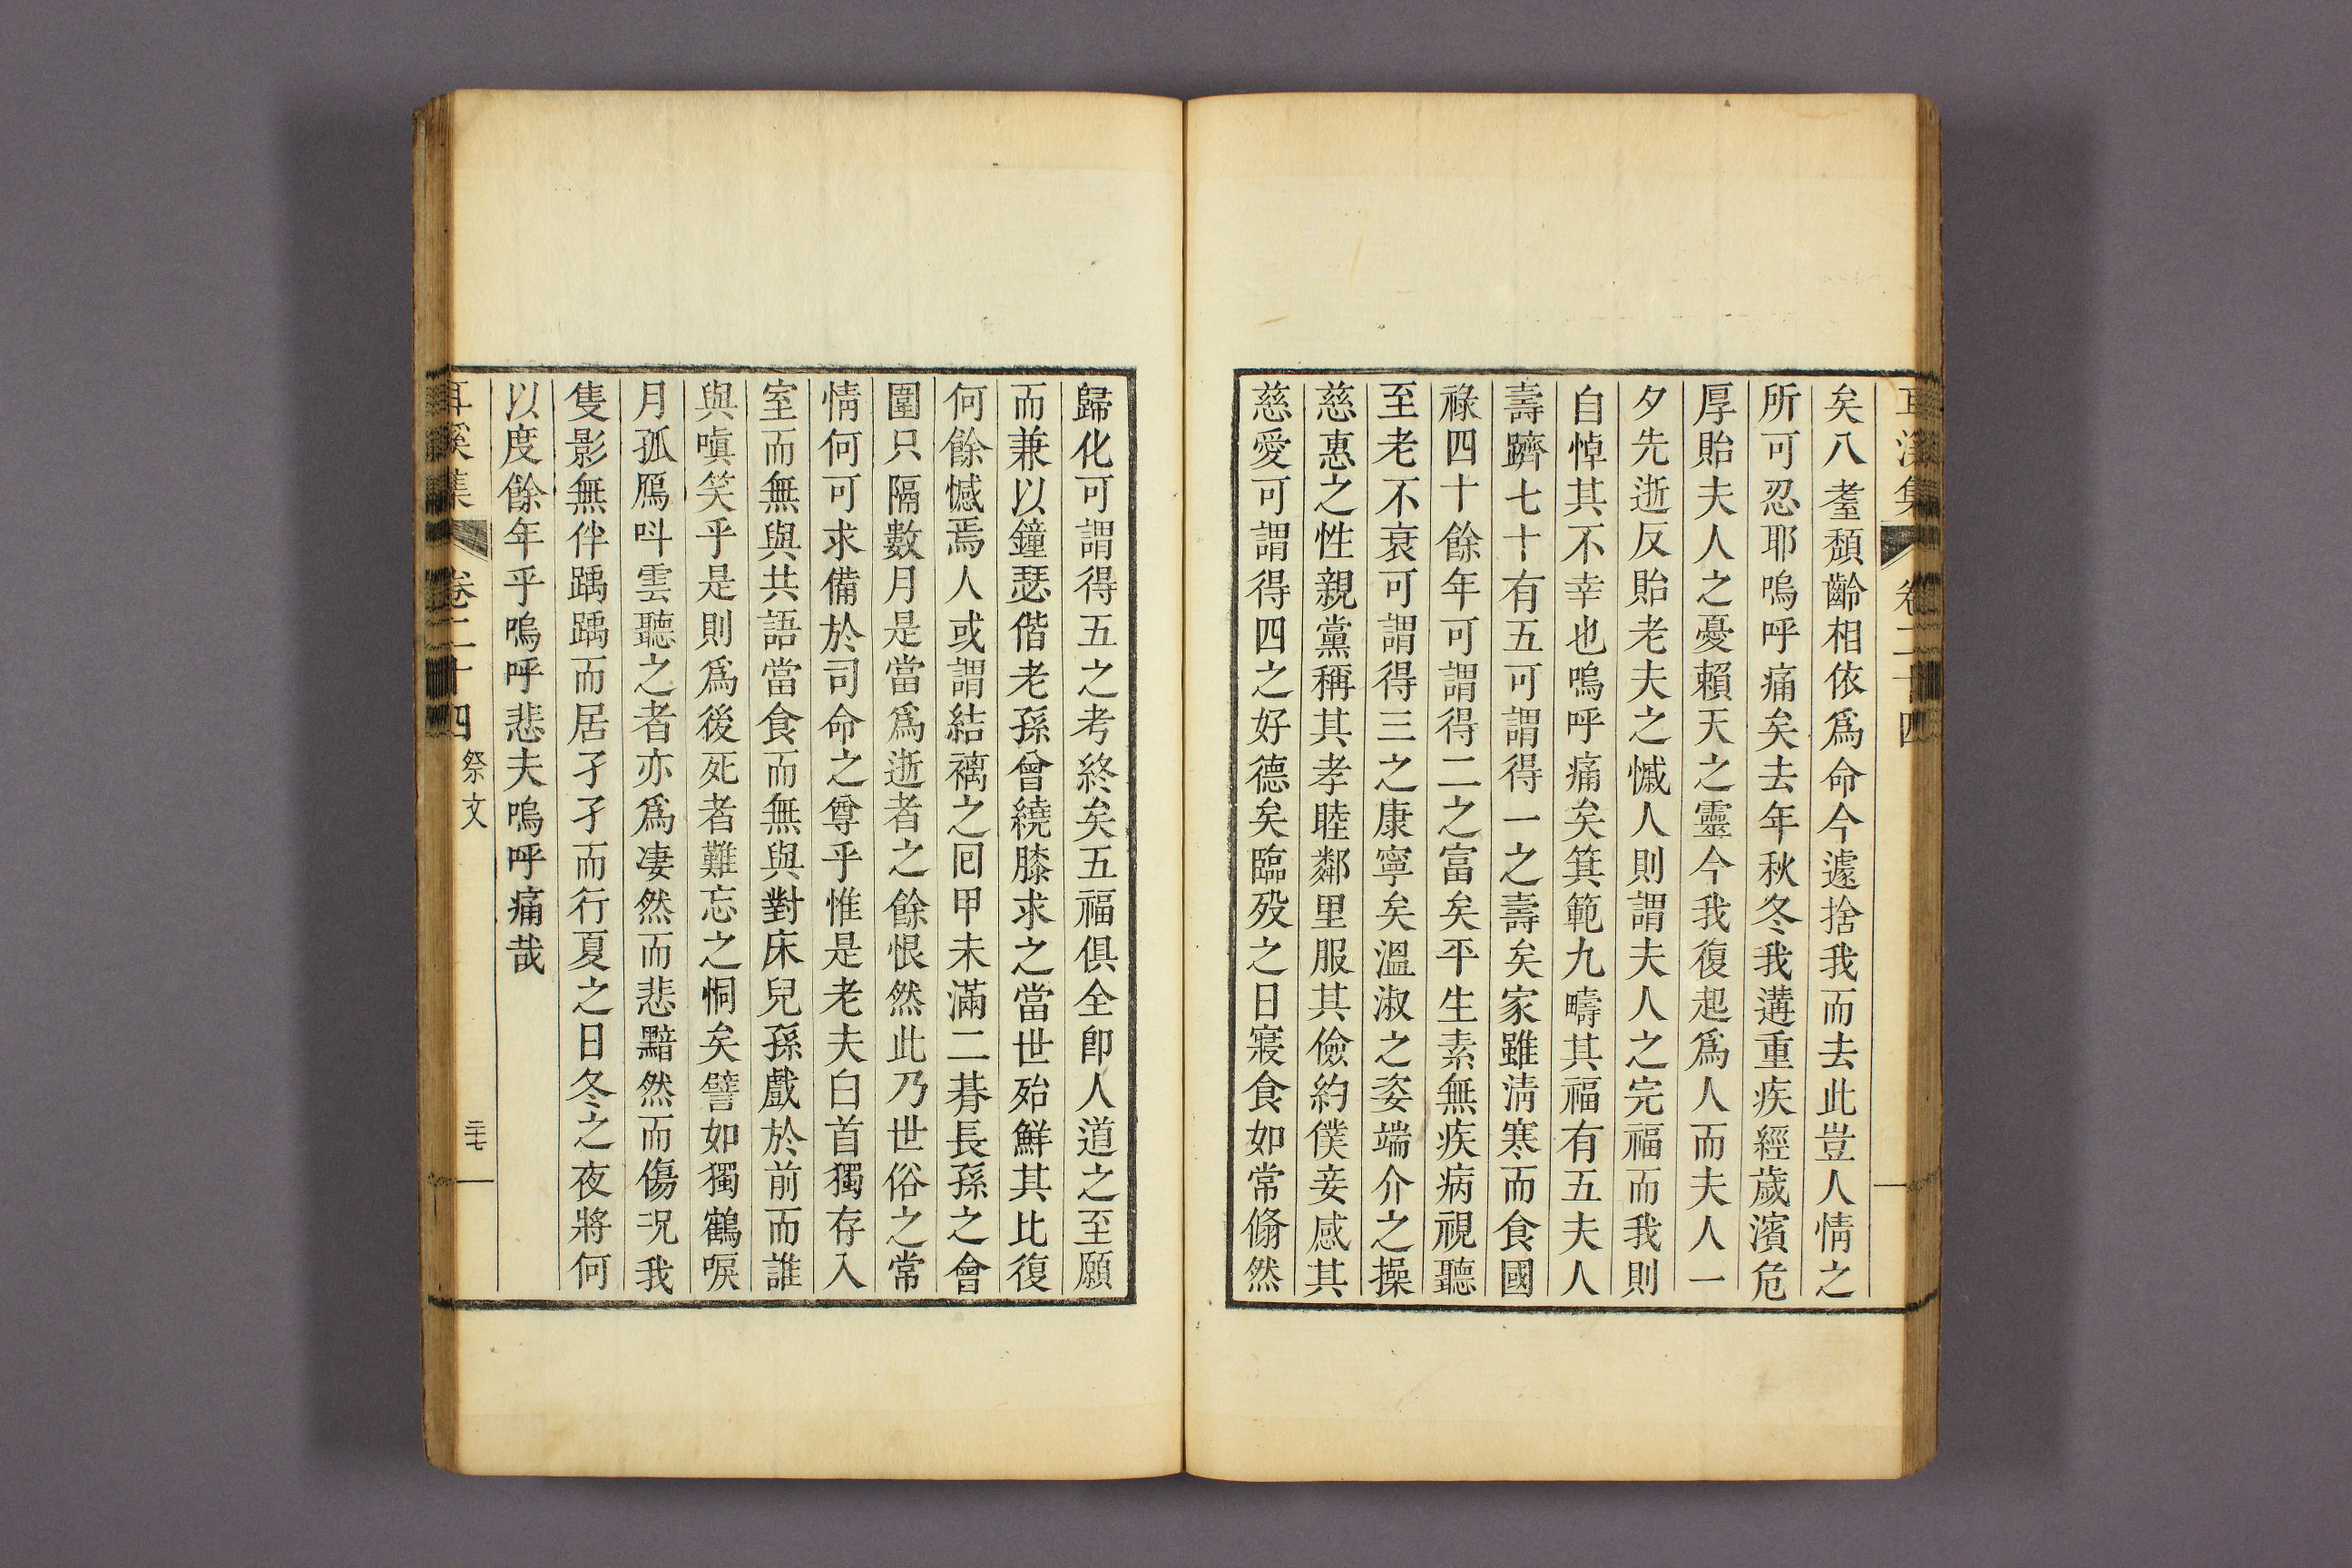 矣八耋頹齡相依爲命今遽捨我而去此豈人情之
所可忍耶嗚呼痛矣去年秋冬我遘重疾經歲濱危
厚貽夫人之憂賴天之靈今我復起爲人而夫人一
夕先逝反貽老夫之慽人則謂夫人之完福而我則
自悼其不幸也嗚呼痛矣箕範九疇其福有五夫人
壽躋七十有五可謂得一之壽矣家雖淸寒而食國
祿四十餘年可謂得二之富矣平生素無疾病視聽
至老不衰可謂得三之康寧矣溫淑之姿端介之操
慈惠之性親黨稱其孝睦鄰里服其儉約僕妾感其
慈愛可謂得四之好德矣臨歿之日寢食如常翛然
歸化可謂得五之考終矣五福俱全卽人道之至願
而兼以鐘瑟偕老孫曾繞膝求之當世殆鮮其比復
何餘憾焉人或謂結褵之回甲未滿二朞長孫之會
圍只隔數月是當爲逝者之餘恨然此乃世俗之常
情何可求備於司命之尊乎惟是老夫白首獨存入
室而無與共語當食而無與對床兒孫戲於前而誰
與嗔笑乎是則爲後死者難忘之恫矣譬如獨鶴唳
月孤鴈呌雲聽之者亦爲凄然而悲黯然而傷况我
隻影無伴踽踽而居孑孑而行夏之日冬之夜將何
以度餘年乎嗚呼悲夫嗚呼痛哉
耳溪集 卷二十四 祭文 三十七